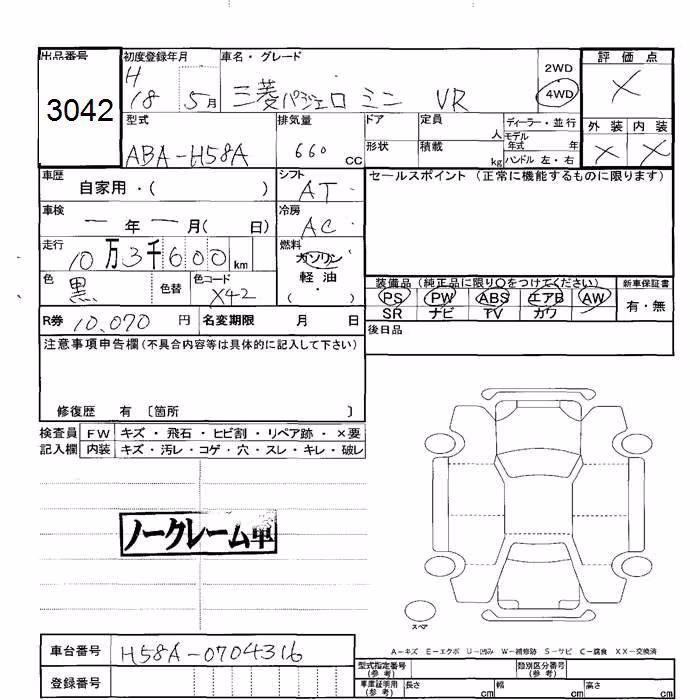 出品番号 初度登録年月 車名・グレード 2WD 評価点
3042 H 18 5月 三菱パジェロミニ VR 4WD X
型式 排気量 ドア 定員 人 ディーラー・並行 外装 内装
ABA-H58A 660 CC 形状 積載 kg モデル年式 年 ハンドル 左・右 X X
車歴 自家用・( ) シフト AT セールスポイント (正常に機能するものに限ります)
車検 一年一月( 日) 冷房 AC
走行 10万3千600km 燃料 ガソリン
色 黒 色替 色コード X42 軽油 ( )
装備品 (純正品に限り○をつけてください) 新車保証書
PS PW ABS エアB AW 有・無
SR ナビ TV カワ
R券 10,070 円 名変期限 月 日 後日品
注意事項申告欄(不具合内容等は具体的に記入して下さい)
修復歴 有 〔箇所 〕
検査員 FW キズ・飛石・ヒビ割・リペア跡・×要
記入欄 内装 キズ・汚レ・コゲ・穴・スレ・キレ・破レ
ノークレーム車
スペア
A-キズ E-エクボ U-凹み W-補修跡 S-サビ C-腐食 XX-交換済
車台番号 H58A-0704316
登録番号
型式指定番号(参考) 類別区分番号(参考)
車庫証明用(参考) 長さ cm 幅 cm 高さ cm